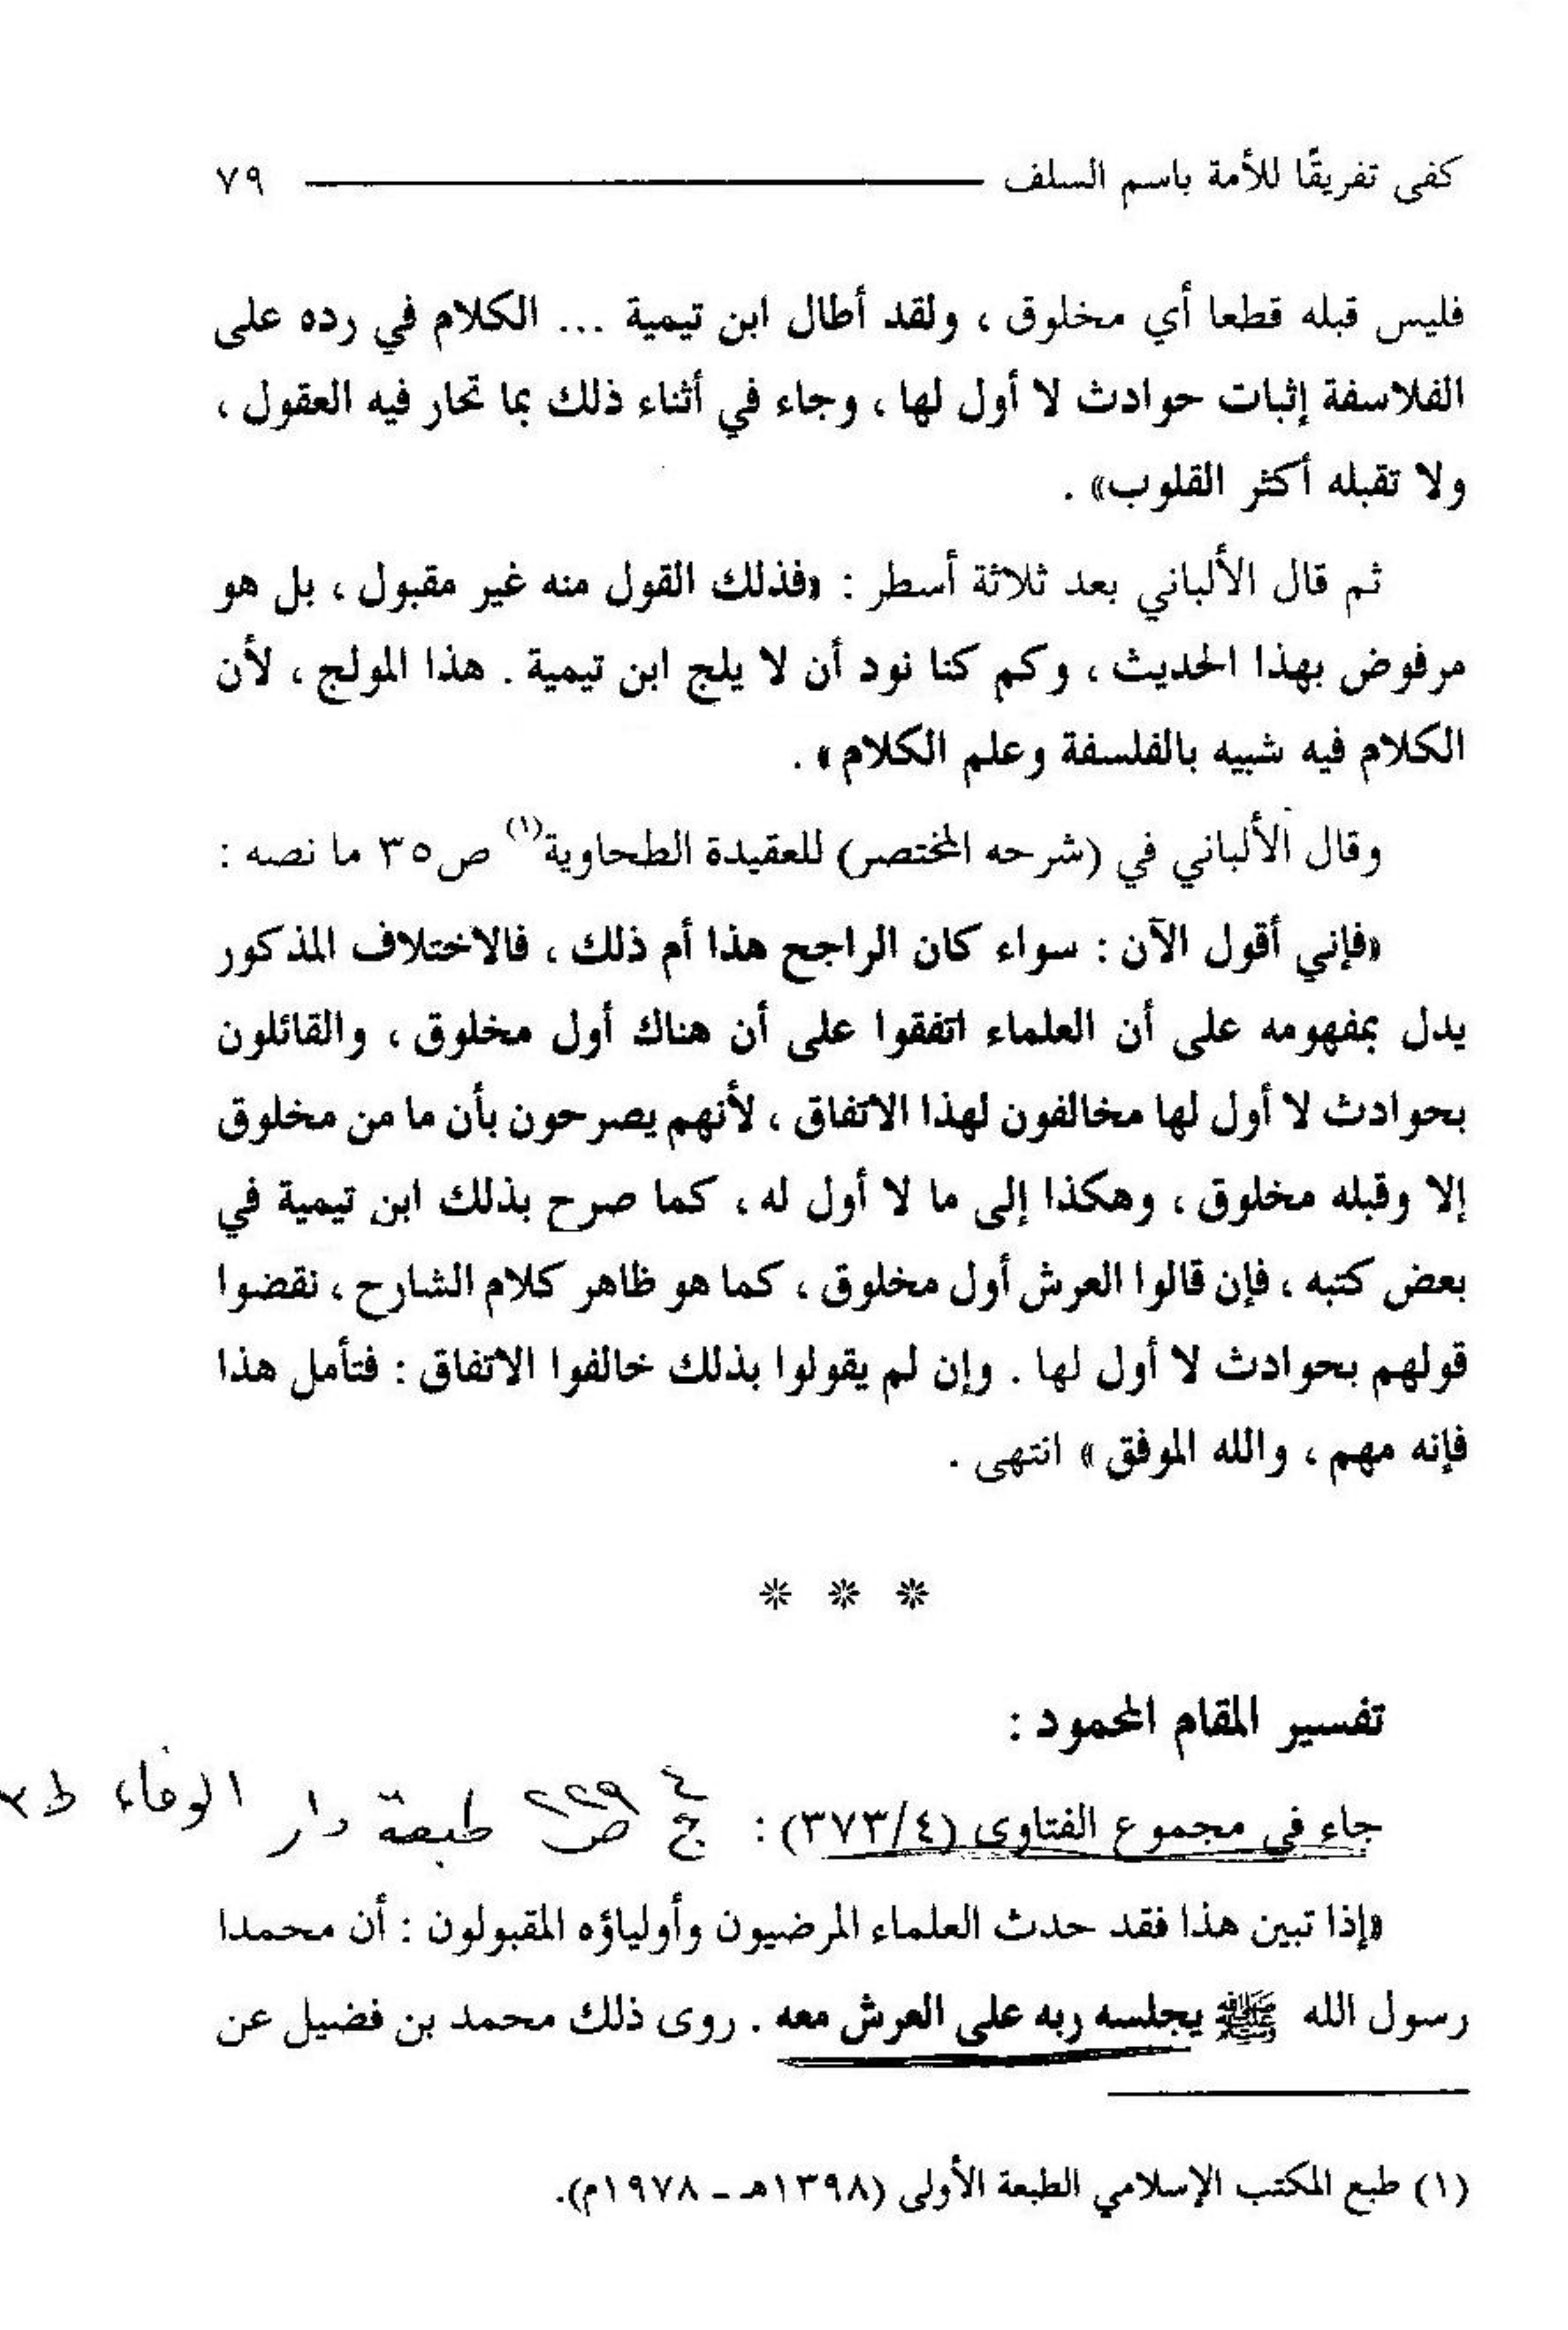 كفى تفريقًا للأمة باسم السلف ٧٩
فليس قبله قطعا أي مخلوق ، ولقد أطال ابن تيمية ... الكلام في رده على
الفلاسفة إثبات حوادث لا أول لها ، وجاء في أثناء ذلك بما تحار فيه العقول ،
ولا تقبله أكثر القلوب» .
ثم قال الألباني بعد ثلاثة أسطر : «فذلك القول منه غير مقبول ، بل هو
مرفوض بهذا الحديث ، وكم كنا نود أن لا يلج ابن تيمية . هذا المولج ، لأن
الكلام فيه شبيه بالفلسفة وعلم الكلام» .
وقال الألباني في (شرحه المختصر) للعقيدة الطحاوية(١) ص٣٥ ما نصه :
«فإني أقول الآن : سواء كان الراجح هذا أم ذلك ، فالاختلاف المذكور
يدل بمفهومه على أن العلماء اتفقوا على أن هناك أول مخلوق ، والقائلون
بحوادث لا أول لها مخالفون لهذا الاتفاق ، لأنهم يصرحون بأن ما من مخلوق
إلا وقبله مخلوق ، وهكذا إلى ما لا أول له ، كما صرح بذلك ابن تيمية في
بعض كتبه ، فإن قالوا العرش أول مخلوق ، كما هو ظاهر كلام الشارح ، نقضوا
قولهم بحوادث لا أول لها . وإن لم يقولوا بذلك خالفوا الاتفاق : فتأمل هذا
فإنه مهم ، والله الموفق» انتهى .
* * *
تفسير المقام المحمود :
جاء في مجموع الفتاوى (٣٧٣/٤) : ج ٤ ص ٢٢٩ طبعة دار الوفاء ط٣
«إذا تبين هذا فقد حدث العلماء المرضيون وأولياؤه المقبولون : أن محمدا
رسول الله ﷺ يجلسه ربه على العرش معه . روى ذلك محمد بن فضيل عن
(١) طبع المكتب الإسلامي الطبعة الأولى (١٣٩٨هـ - ١٩٧٨م).